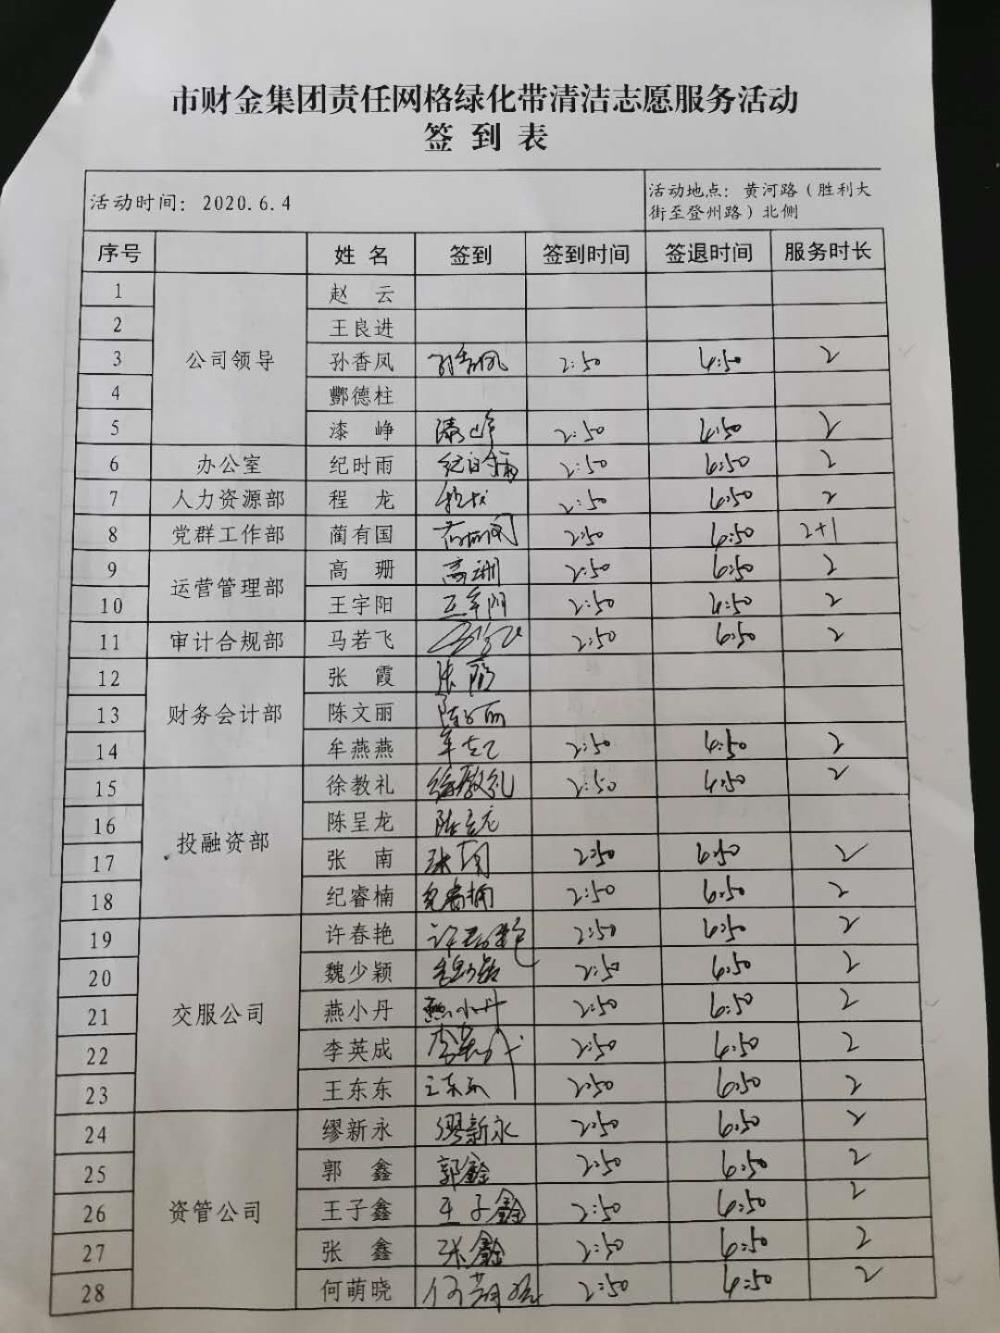 市财金集团责任网格绿化带清洁志愿服务活动
签 到 表
活动时间: 2020.6.4 活动地点: 黄河路(胜利大
街至登州路)北侧
序号 姓 名 签到 签到时间 签退时间 服务时长
1 赵 云
2 王良进
3 公司领导 孙香凤 孙香凤 2:50 4:50 2
4 酆德柱
5 漆 峥 漆峥 2:50 4:50 2
6 办公室 纪时雨 纪时雨 2:50 4:50 2
7 人力资源部 程 龙 程龙 2:50 4:50 2
8 党群工作部 蔺有国 蔺有国 2:50 4:50 2+1
9 运营管理部 高 珊 高珊 2:50 4:50 2
10 王宇阳 王宇阳 2:50 4:50 2
11 审计合规部 马若飞 2:50 4:50 2
12 张 霞 张霞
13 财务会计部 陈文丽 陈文丽
14 牟燕燕 2:50 4:50 2
15 徐教礼 徐教礼 2:50 4:50 2
16 投融资部 陈呈龙
17 张 南 张南 2:50 4:50 2
18 纪睿楠 纪睿楠 2:50 4:50 2
19 许春艳 许春艳 2:50 4:50 2
20 魏少颖 2:50 4:50 2
21 交服公司 燕小丹 燕小丹 2:50 4:50 2
22 李英成 李英成 2:50 4:50 2
23 王东东 2:50 4:50 2
24 缪新永 缪新永 2:50 4:50 2
25 郭 鑫 郭鑫 2:50 4:50 2
26 资管公司 王子鑫 王子鑫 2:50 4:50 2
27 张 鑫 张鑫 2:50 4:50 2
28 何萌晓 何萌晓 2:50 4:50 2